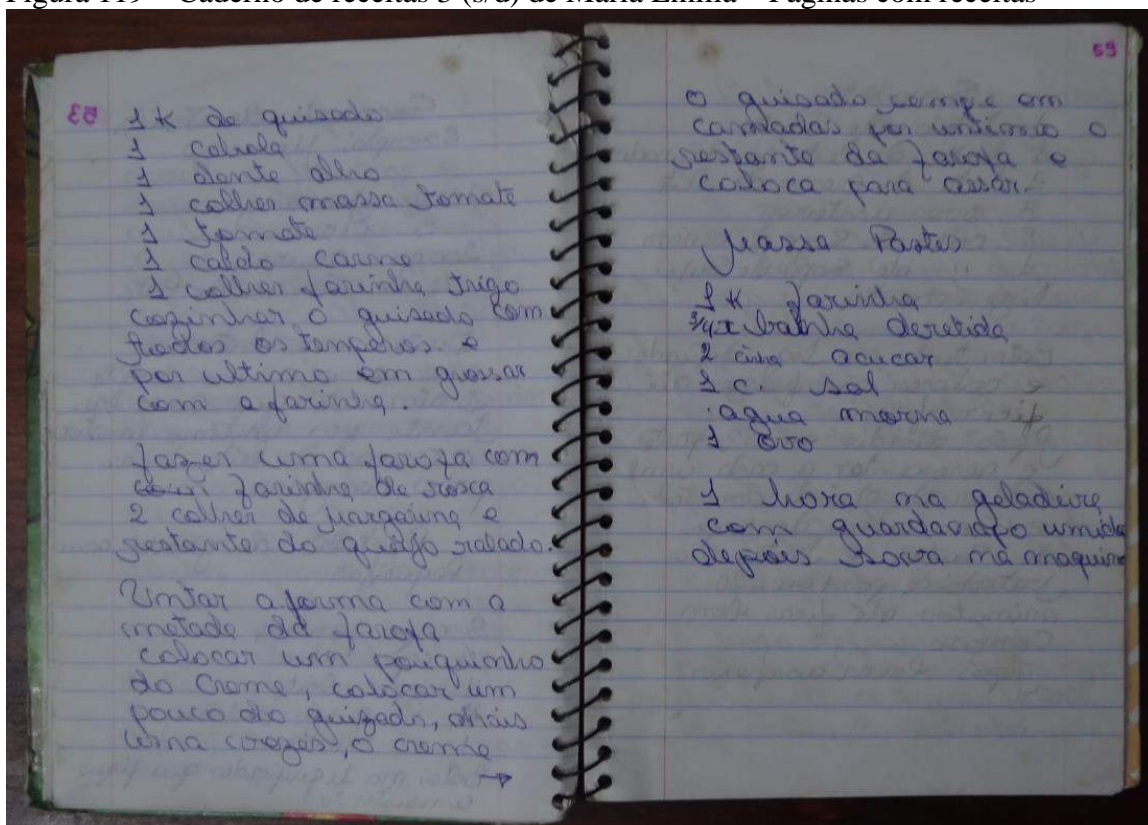 Figura 119 – Caderno de receitas 3 (s/d) de Maria Emília – Páginas com receitas
53
1 K de quisado
1 cebola
1 dente alho
1 colher massa tomate
1 tomate
1 caldo carne
1 colher farinha trigo
cozinhar o quisado com
todos os temperos e
por ultimo em grossar
com a farinha.
Fazer uma farofa com
com farinha de rosca
2 colher de margarina e
restante do queijo ralado.
Untar a forma com a
metade da farofa
colocar um pouquinho
do Creme, colocar um
pouco do guizado, mais
uma o creme
→
59
o guisado sempre em
camadas por ultimo o
restante da farofa e
coloca para assar.
Massa Pasteis
1 K farinha
3/4 x banha derretida
2 acucar
1 c. sal
agua morna
1 ovo
1 hora na geladeira
com guardanapo umido
depois sova na maquina